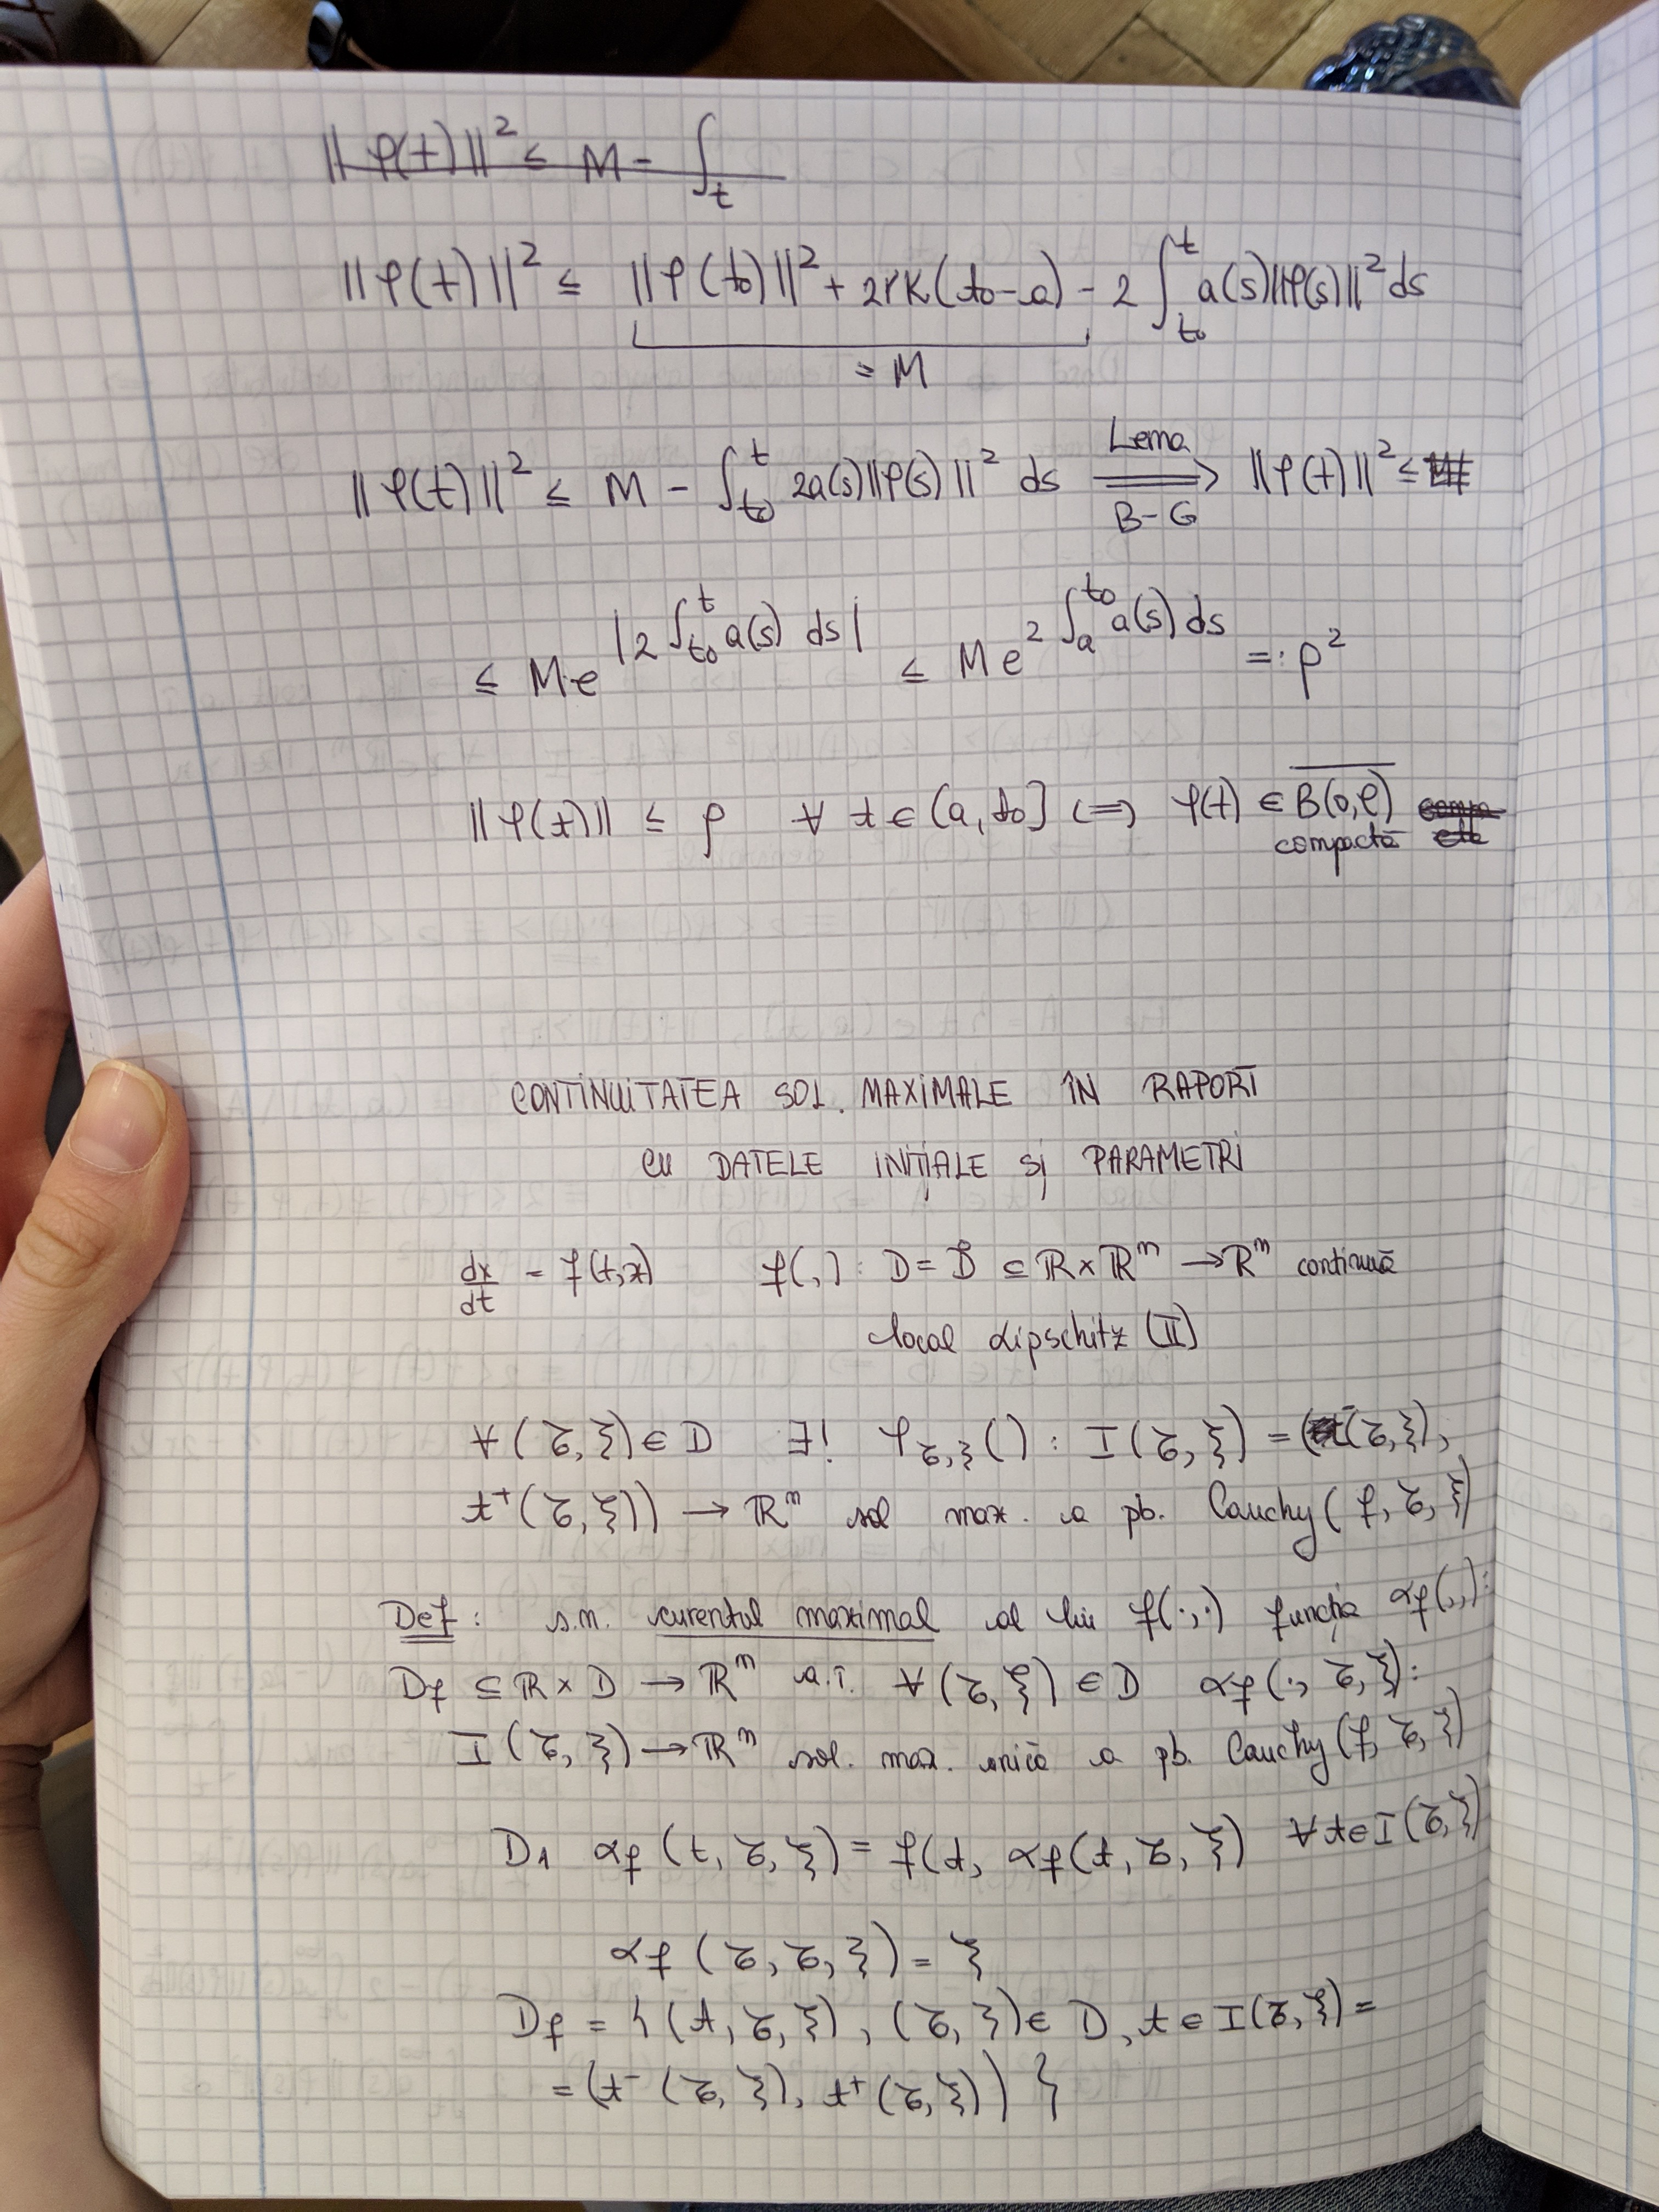 ||φ(t)||² ≤ M - ∫_t
||φ(t)||² ≤ ||φ(t₀)||² + 2rK(t₀-a) - 2∫_{t₀}^{t} a(s)||φ(s)||² ds
= M
||φ(t)||² ≤ M - ∫_{t₀}^{t} 2a(s)||φ(s)||² ds ⟹ (Lema B-G) ||φ(t)||² ≤
≤ M·e^{|2∫_{t₀}^{t} a(s) ds|} ≤ M e^{2∫_{a}^{t₀} a(s) ds} =: ρ²
||φ(t)|| ≤ ρ ∀ t ∈ (a, t₀] ⟺ φ(t) ∈ \overline{B(0,ρ)}
compactă
CONTINUITATEA SOL. MAXIMALE ÎN RAPORT
CU DATELE INIȚIALE ȘI PARAMETRI
dx/dt = f(t,x) f(,) : D = D̊ ⊆ ℝ×ℝⁿ → ℝⁿ continuă
local Lipschitz (II)
∀ (τ,ξ) ∈ D ∃! φ_{τ,ξ}() : I(τ,ξ) = (t⁻(τ,ξ),
t⁺(τ,ξ)) → ℝⁿ sol max. a pb. Cauchy (f, τ, ξ)
Def: s.n. curentul maximal al lui f(·,·) funcția αf(,,):
Df ⊆ ℝ×D → ℝⁿ a.î. ∀ (τ,ξ) ∈ D αf(·, τ, ξ):
I(τ,ξ) → ℝⁿ sol. max. unică a pb. Cauchy (f, τ, ξ)
D₁ αf (t, τ, ξ) = f(t, αf(t, τ, ξ) ∀t∈I(τ,ξ)
αf (τ, τ, ξ) = ξ
Df = { (t, τ, ξ), (τ, ξ) ∈ D, t ∈ I(τ,ξ) =
= (t⁻(τ,ξ), t⁺(τ,ξ)) }